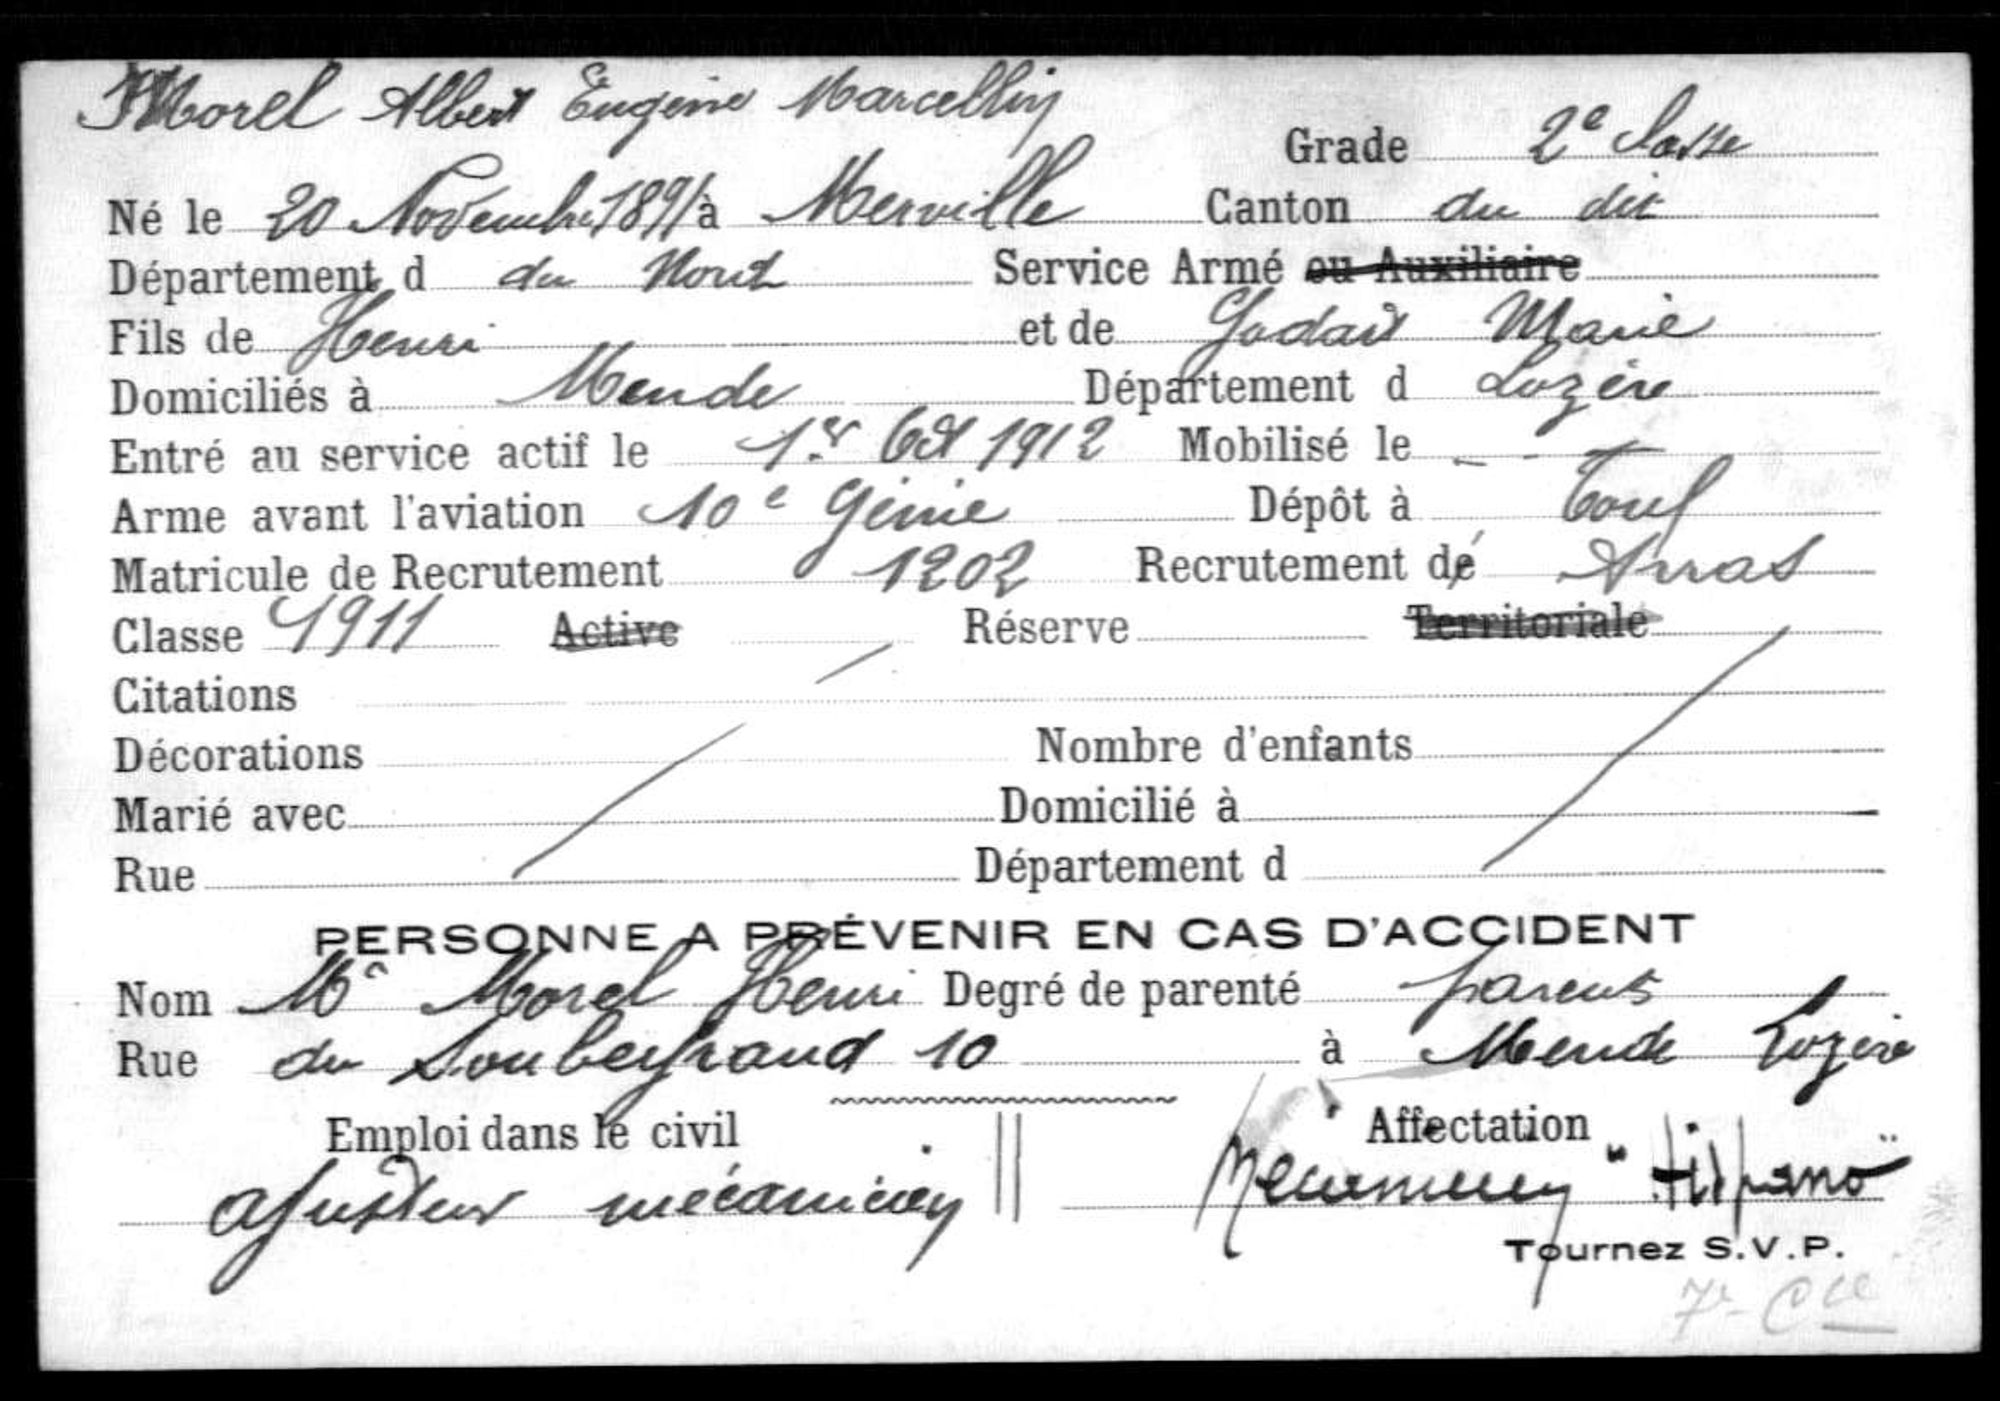 Morel Albert Eugène Marcellin
Grade 2e Classe
Né le 20 Novembre 1891 à Merville Canton du dit
Département d du Nord Service Armé ou Auxiliaire
Fils de Henri et de Godart Marie
Domiciliés à Mende Département d Lozère
Entré au service actif le 1er Oct 1912 Mobilisé le _ - —
Arme avant l'aviation 10e Génie Dépôt à Toul
Matricule de Recrutement 1202 Recrutement dé Arras
Classe 1911 Active Réserve Territoriale
Citations
Décorations Nombre d'enfants
Marié avec Domicilié à
Rue Département d
PERSONNE A PRÉVENIR EN CAS D'ACCIDENT
Nom Mr Morel Henri Degré de parenté parents
Rue du Soubeyrand 10 à Mende Lozère
Emploi dans le civil Affectation
ajusteur mécanicien Mécanicien "Hispano"
Tournez S.V.P.
7e Cie